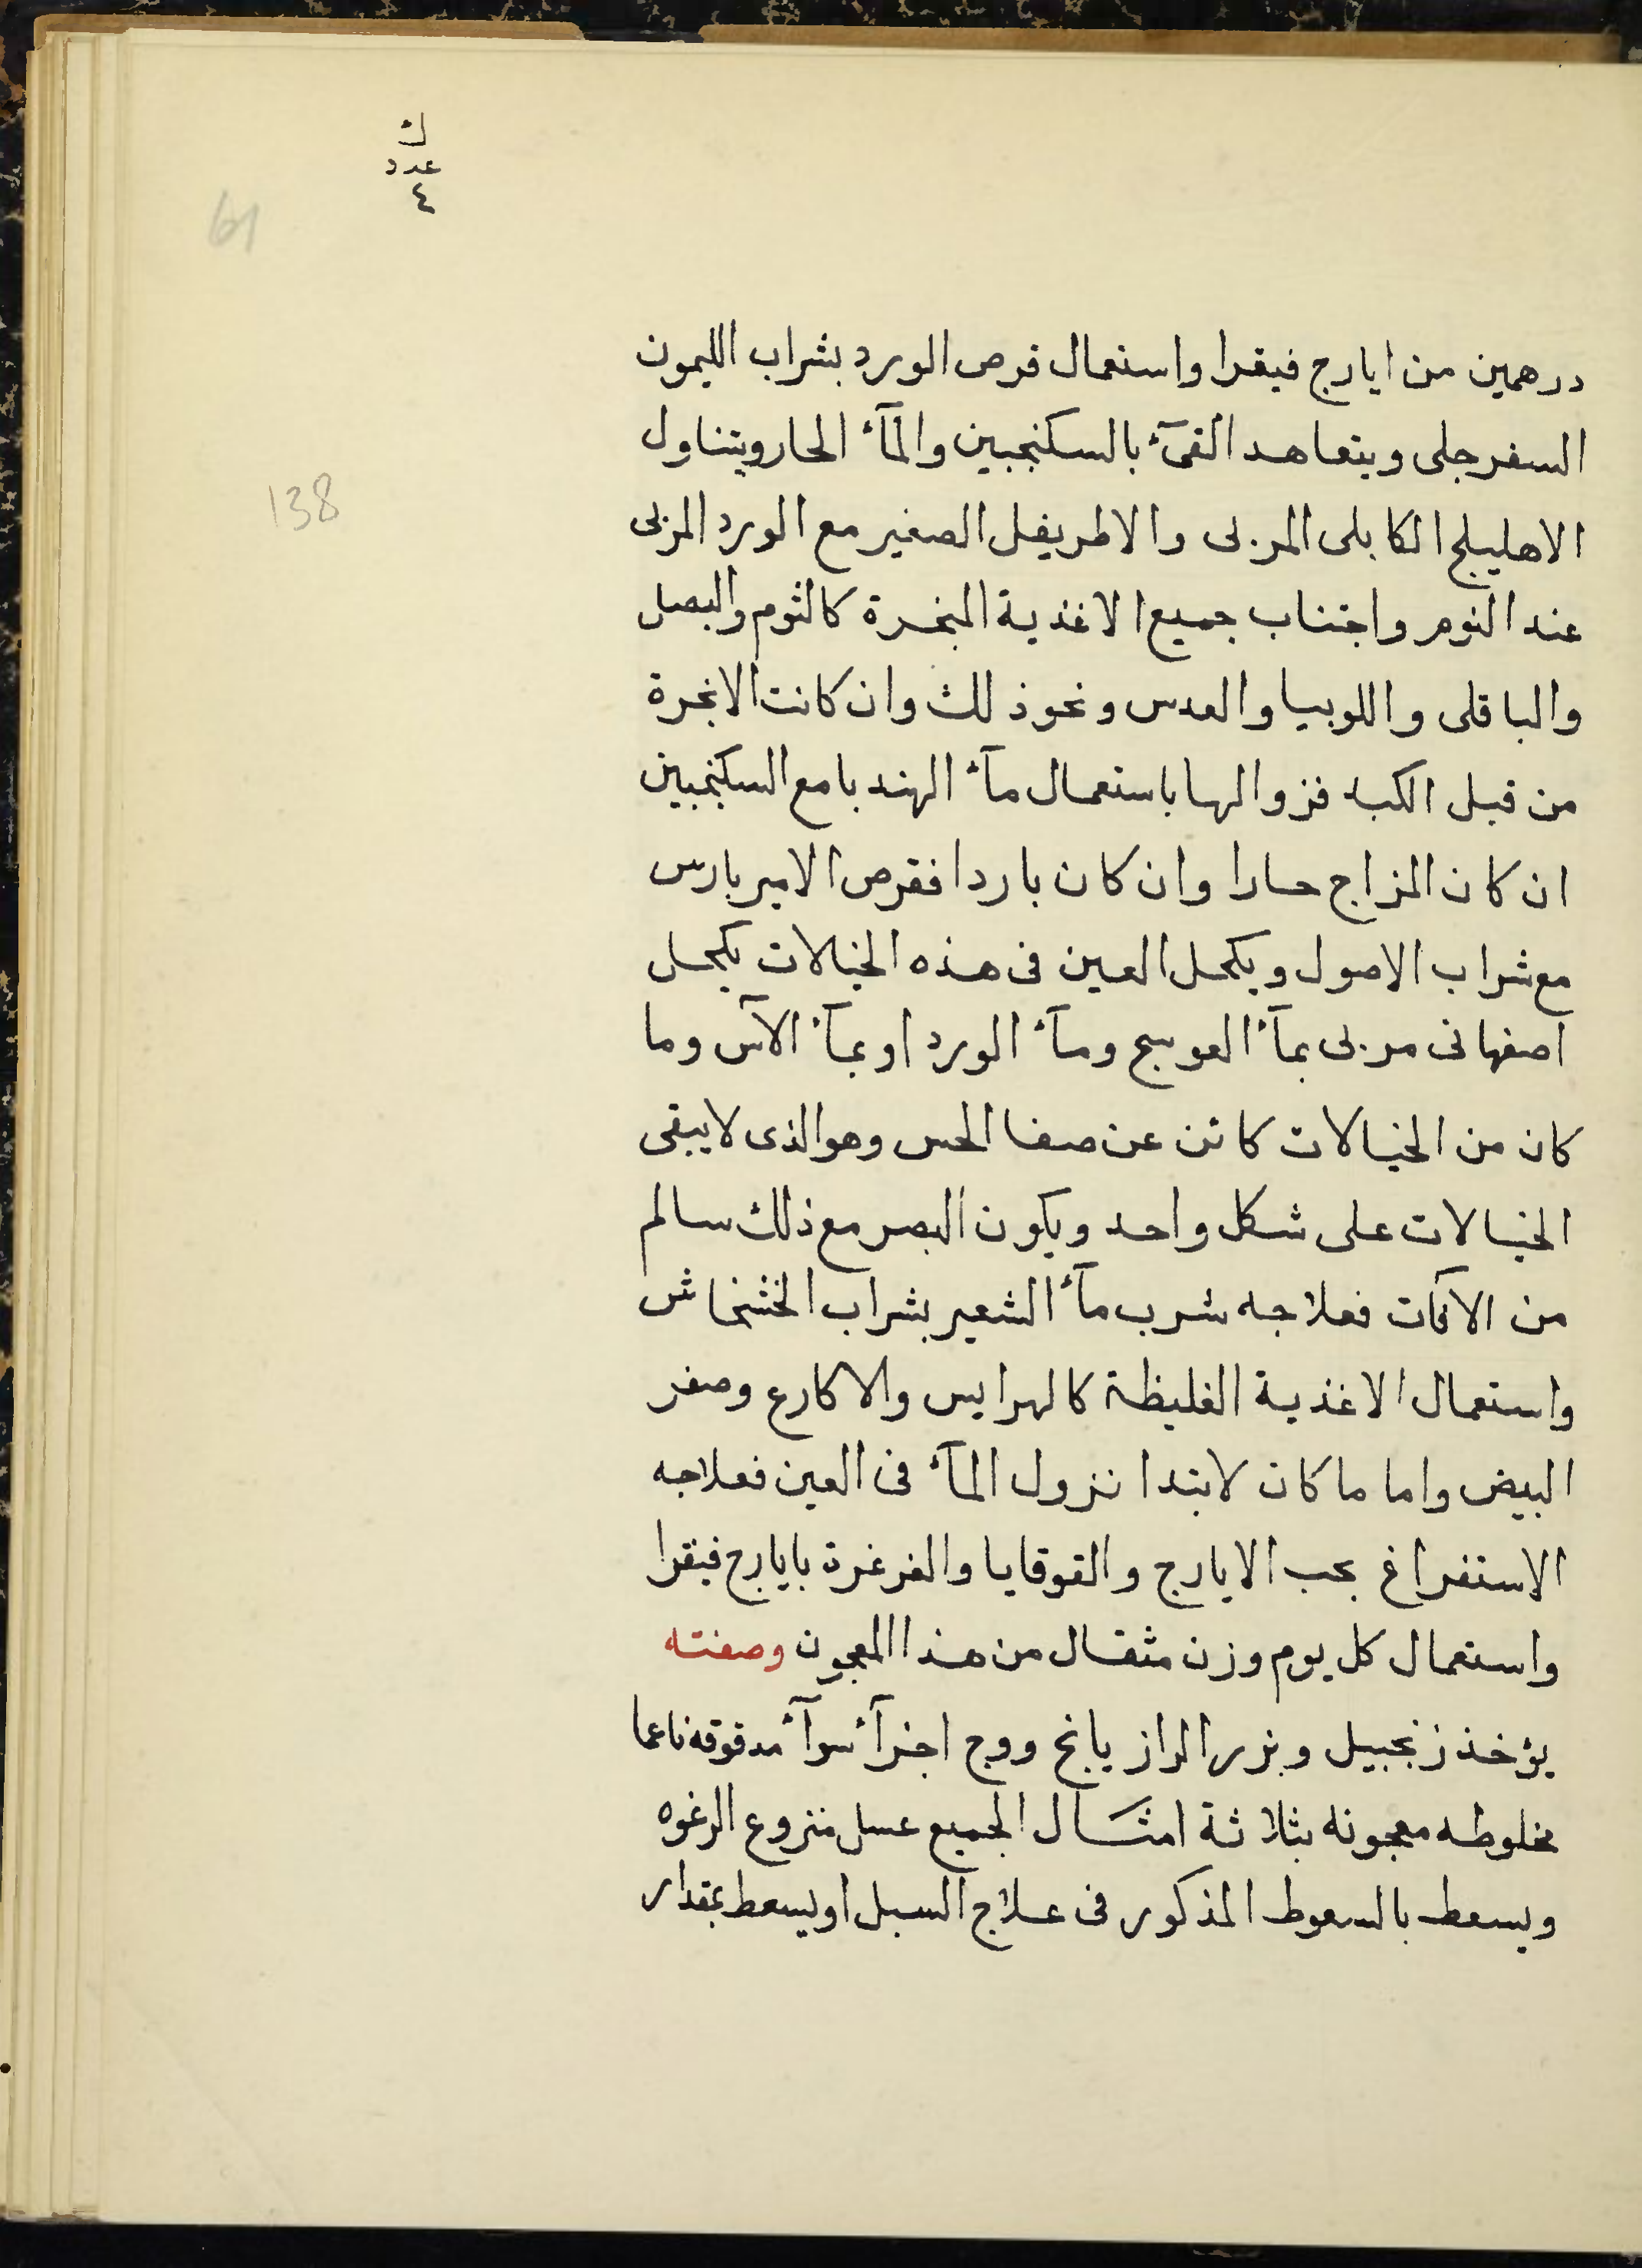 ك
عدد
٤
61
138
درهمين من ايارج فيقرا واستعمال قرص الورد بشراب الليمون
السفرجلى ويتعاهد القىٓء بالسكنجبين والمآء الحار ويتناول
الاهليلج الكابلى المربى والاطريفل الصغير مع الورد المربى
عند النوم واجتناب جميع الاغذية المبخرة كالثوم والبصل
والباقلى واللوبيا والعدس ونحوذلك وان كانت الابخرة
من قبل الكبد فزوالها باستعمال مآء الهندبا مع السكنجبين
ان كان المزاج حارا وان كان باردا فقرص الاميربارس
مع شراب الاصول ويكحل العين فى هذه الخيالات بكحل
اصفهانى مربى بمآء العوسج ومآء الورد او بمآء الآس وما
كان من الخيالات كائن عن صفا الحس وهو الذى لا يبقى
الخيالات على شكل واحد ويكون البصر مع ذلك سالم
من الآفات فعلاجه شرب مآء الشعير بشراب الخشخاش
واستعمال الاغذية الغليظة كالهرايس والاكارع وصفر
البيض واما ما كان لابتدا نزول المآء فى العين فعلاجه
الاستفراغ بحب الايارج والقوقايا والغرغرة بايارج فيقرا
واستعمال كل يوم وزن مثقال من هذا المعجون وصفته
يؤخذ زنجبيل وبزر الرازيانج ووج اجزآء سوآء مدقوقه ناعما
مخلوطه معجونه بثلاثة امثال الجميع عسل منزوع الرغوه
ويسعط بالسعوط المذكور فى علاج السبل او يسعط بمقدار